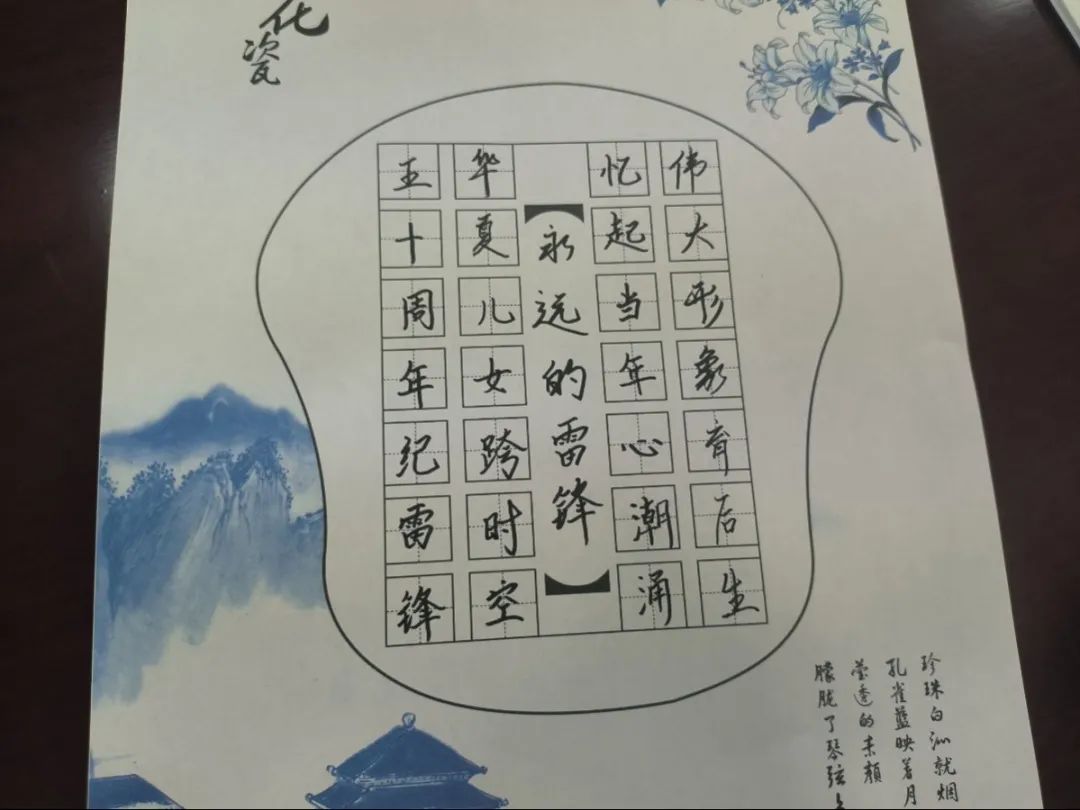 化瓷
伟大形象育后生
忆起当年心潮涌
永远的雷锋
华夏儿女跨时空
五十周年纪雷锋
珍珠白沁就烟
孔雀蓝映着月
莹透的素颜
朦胧了琴弦